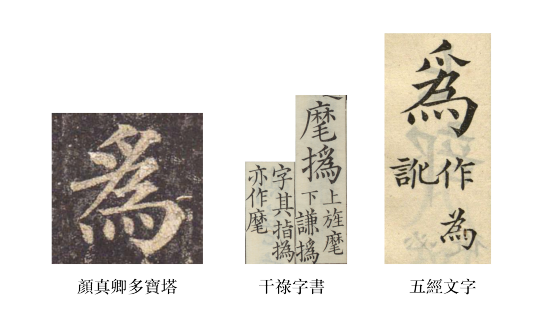 爲
麾撝
上旌麾
下謙撝
字其指撝
亦作麾
爲
作為
訛
顏真卿多寶塔
干祿字書
五經文字